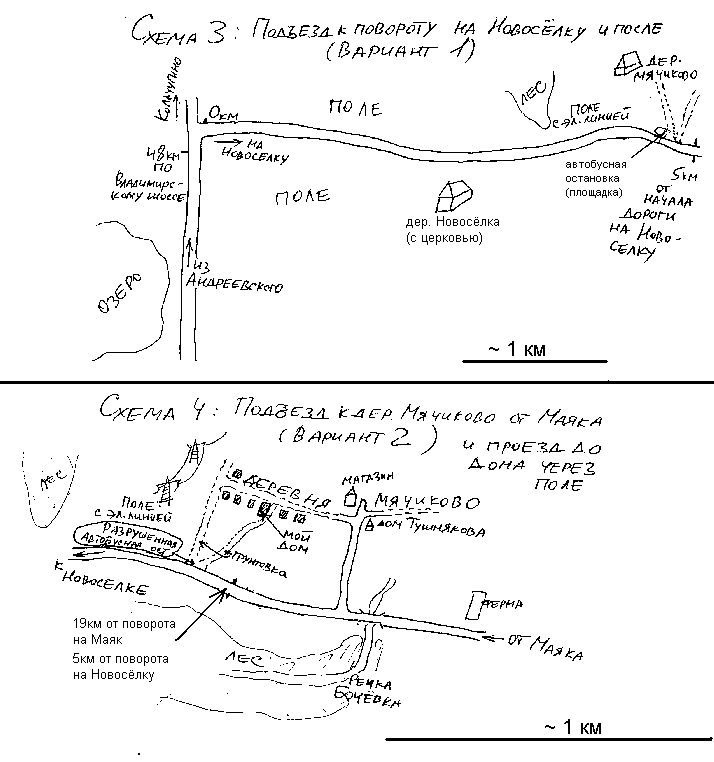 Схема 3: Подъезд к повороту на Новосёлку и после
(Вариант 1)
Кольчугино
0 км
на
Новоселку
48 км
по
Владимирс-
кому шоссе
Поле
Поле
Лес
Поле
с эл. линией
дер.
Мячиково
автобусная
остановка
(площадка)
5 км
от
начала
дороги
на Ново-
селку
дер. Новосёлка
(с церковью)
Озеро
из
Андреевского
~ 1 км
Схема 4: Подъезд к дер. Мячиково от Маяка
(Вариант 2) и проезд до
дона через
поле
Лес
Поле
с эл. линией
Разрушенная
автобусная ост
к
Новоселке
Деревня
магазин
Мячиково
дом Тушнякова
мой
дом
грунтовка
ферма
от Маяка
19км от поворота
на Маяк
5км от поворота
на Новосёлку
Лес
речка
Бочёвка
~ 1 км